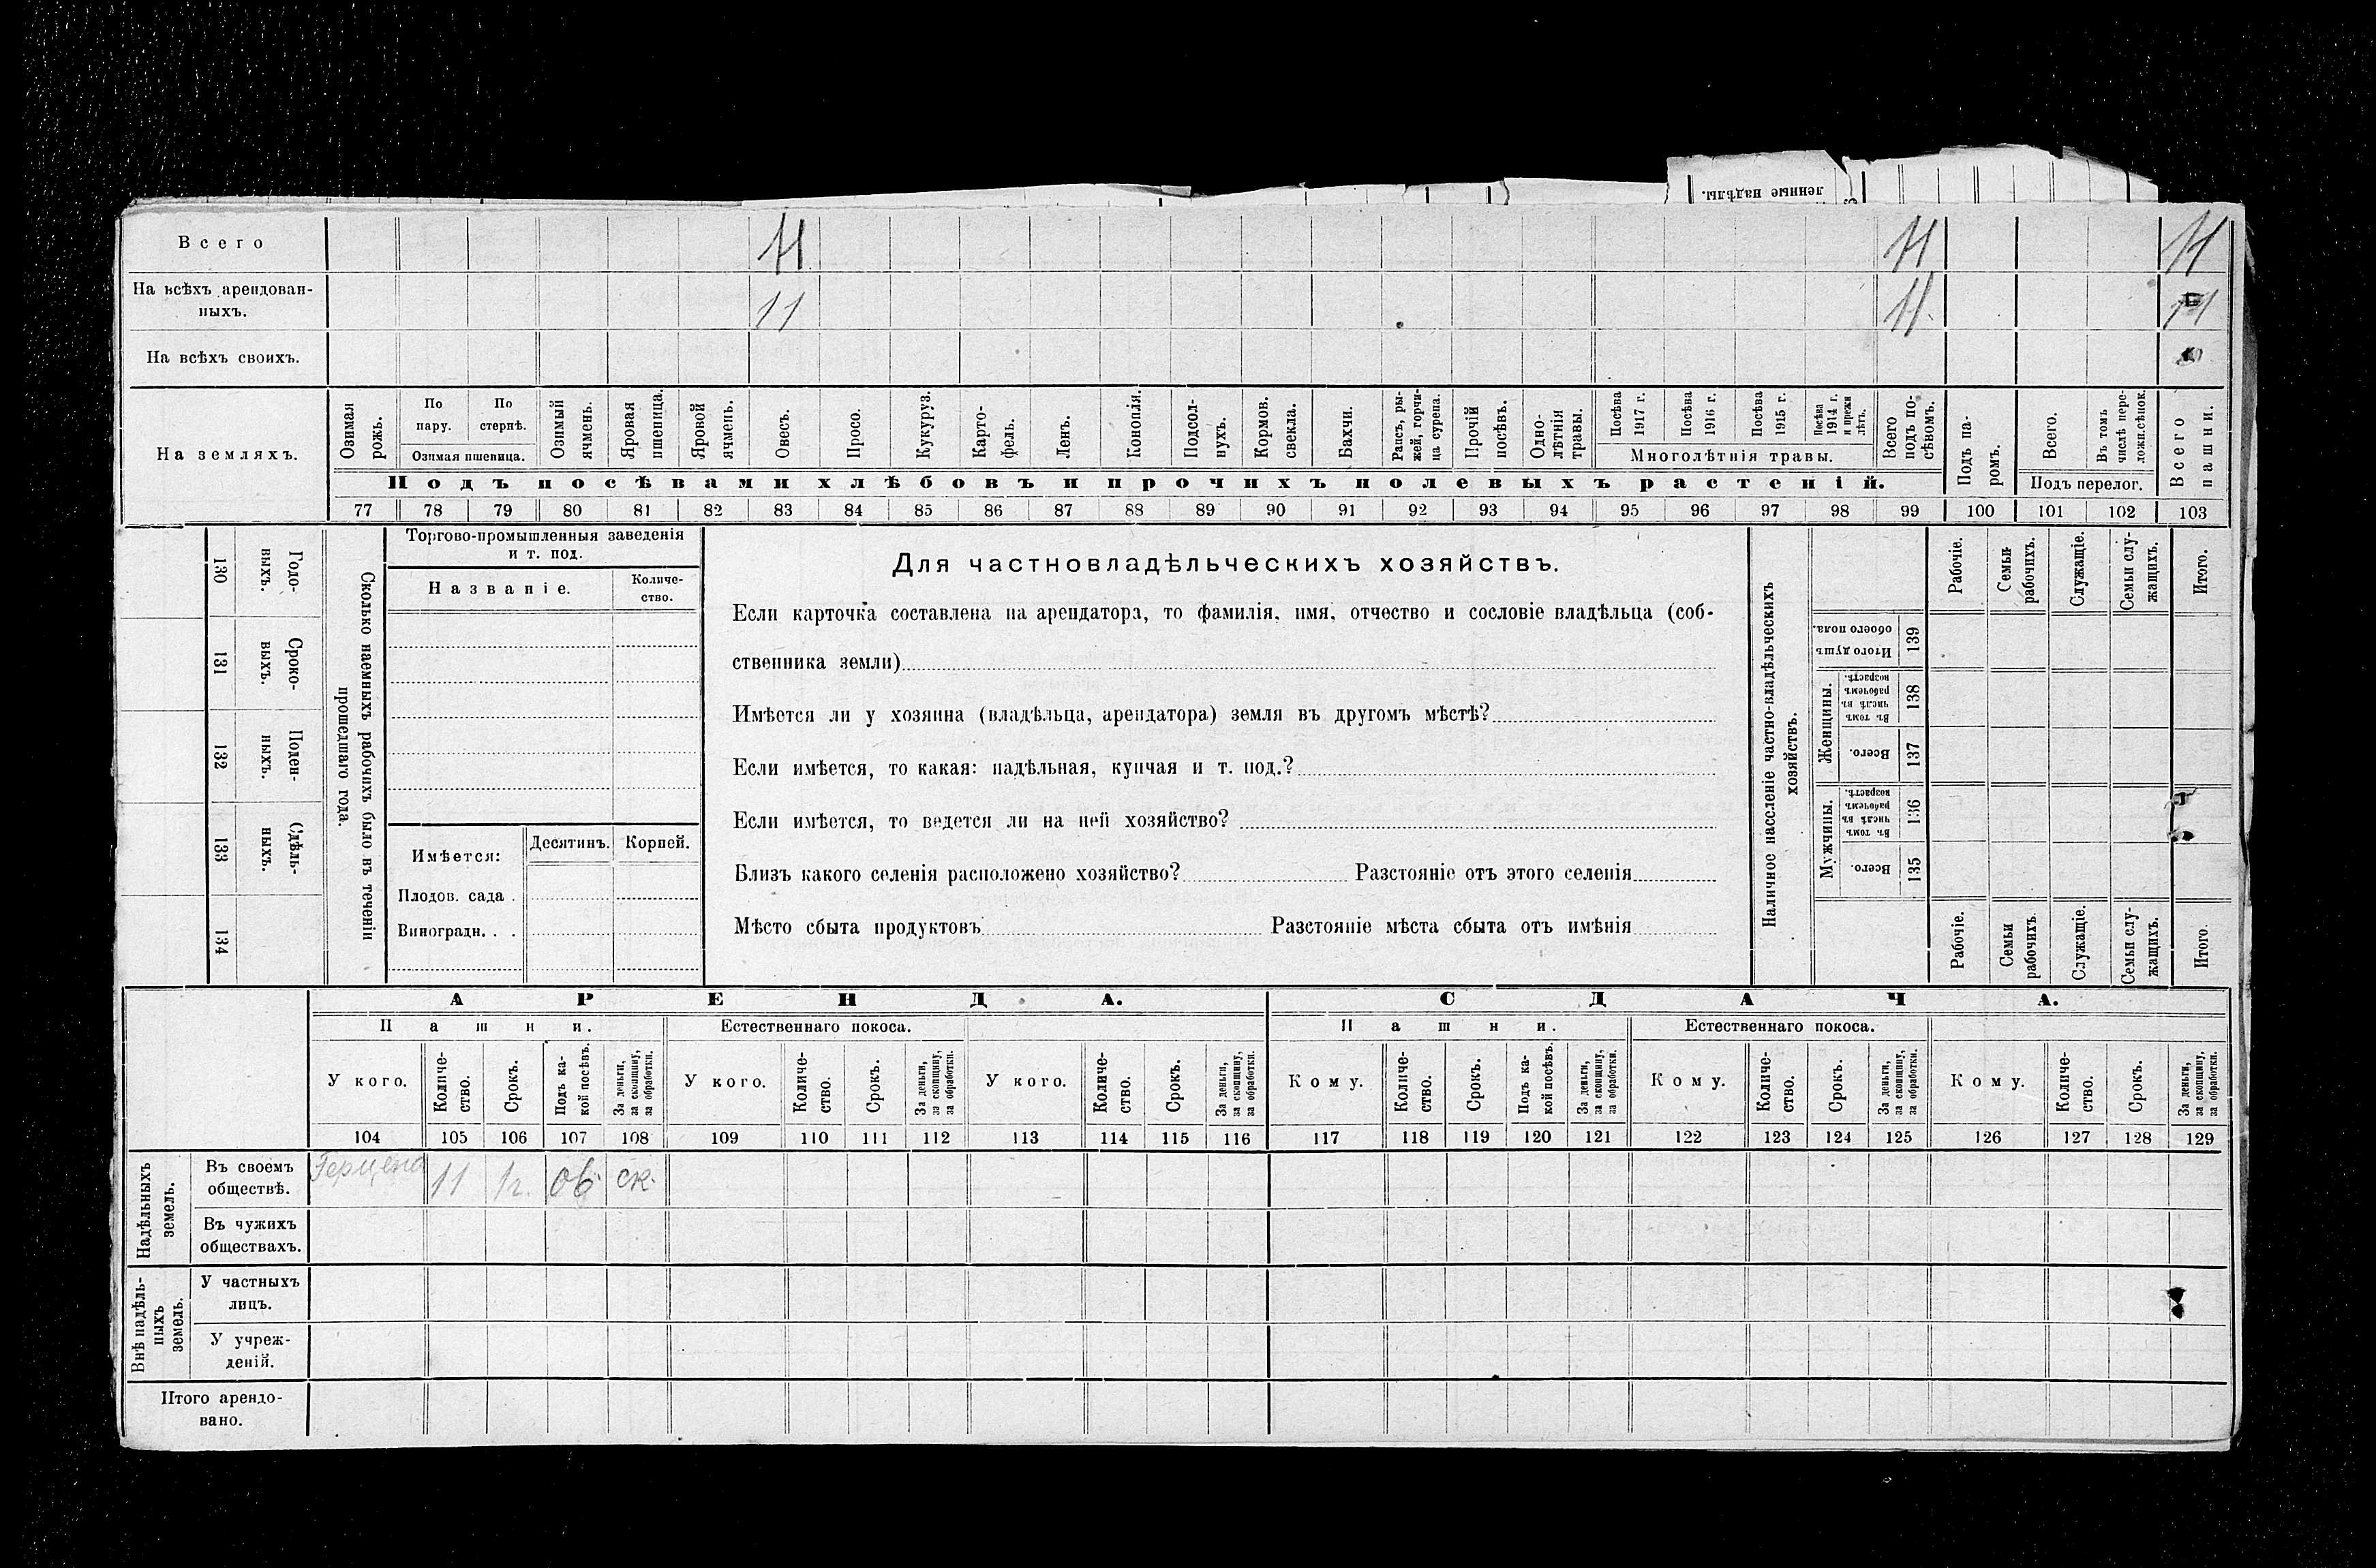 ленные надѣлы.
Всего 11 11 11
На всѣхъ арендован-
ныхъ. 11 11 11
На всѣхъ своихъ.
На земляхъ.
Озимая рожь.
По пару.
По стернѣ.
Озимая пшеница.
Озимый ячмень.
Яровая пшеница.
Яровой ячмень.
Овесъ.
Просо.
Кукуруз.
Карто-
фель.
Ленъ.
Конопля.
Подсол-
нухъ.
Кормов. свекла.
Бахчи.
Рапсъ, ры-
жей, горчи-
ца сурепа.
Прочій посѣвъ.
Одно-
лѣтнія травы.
Посѣва 1917 г.
Посѣва 1916 г.
Посѣва 1915 г.
Посѣва 1914 г. и прежн лѣтъ.
Многолѣтнія травы.
Всего подъ по-
сѣвомъ.
Подъ па-
ромъ.
Всего.
Въ томъ числѣ пере-
ложн.сѣнок.
Подъ перелог.
Всего пашни.
Подъ посѣвами хлѣбовъ и прочихъ полевыхъ растеній.
77 78 79 80 81 82 83 84 85 86 87 88 89 90 91 92 93 94 95 96 97 98 99 100 101 102 103
130 Годо-
выхъ.
131 Сроко-
выхъ.
132 Поден-
ныхъ.
133 Сдѣль-
ныхъ.
134
Сколько наемныхъ рабочихъ было въ теченіи
прошедшаго года.
Торгово-промышленныя заведенія
и т. под.
Названіе.
Количе-
ство.
Имѣется: Десятинъ. Корней.
Плодов. сада .
Виноградн. . .
Для частновладѣльческихъ хозяйствъ.
Если карточка составлена на арендатора, то фамилія, имя, отчество и сословіе владѣльца (соб-
ственника земли)
Имѣется ли у хозяина (владѣльца, арендатора) земля въ другомъ мѣстѣ?
Если имѣется, то какая: надѣльная, купчая и т. под.?
Если имѣется, то ведется ли на ней хозяйство?
Близъ какого селенія расположено хозяйство? Разстояніе отъ этого селенія
Мѣсто сбыта продуктовъ Разстояніе мѣста сбыта отъ имѣнія
Наличное населеніе частно-владѣльческихъ
хозяйствъ.
Рабочіе.
Семьи рабочихъ.
Служащіе.
Семьи слу-
жащихъ.
Итого.
Итого душъ обоего пола. 139
Женщины.
Въ томъ числѣ въ рабочемъ возрастѣ. 138
Всего. 137
Мужчины.
Въ томъ числѣ въ рабочемъ возрастѣ. 136
Всего. 135
Рабочіе.
Семьи рабочихъ.
Служащіе.
Семьи слу-
жащихъ.
Итого.
АРЕНДА. СДАЧА.
Пашни. Естественнаго покоса. Пашни. Естественнаго покоса.
У кого.
Количе-
ство.
Срокъ.
Подъ ка-
кой посѣвъ.
За деньги, за скопщину, за обработки.
У кого.
Количе-
ство.
Срокъ.
За деньги, за скопщину, за обработки.
У кого.
Количе-
ство.
Срокъ.
За деньги, за скопщину, за обработки.
Кому.
Количе-
ство.
Срокъ.
Подъ ка-
кой посѣвъ.
За деньги, за скопщину, за обработки.
Кому.
Количе-
ство.
Срокъ.
За деньги, за скопщину, за обработки.
Кому.
Количе-
ство.
Срокъ.
За деньги, за скопщину, за обработки.
104 105 106 107 108 109 110 111 112 113 114 115 116 117 118 119 120 121 122 123 124 125 126 127 128 129
Надѣльныхъ
земель.
Въ своемъ
обществѣ. Герцена 11 1г. ов. ск.
Въ чужихъ
обществахъ.
Внѣ надѣль-
ныхъ
земель.
У частныхъ
лицъ.
У учреж-
деній.
Итого арендо-
вано.